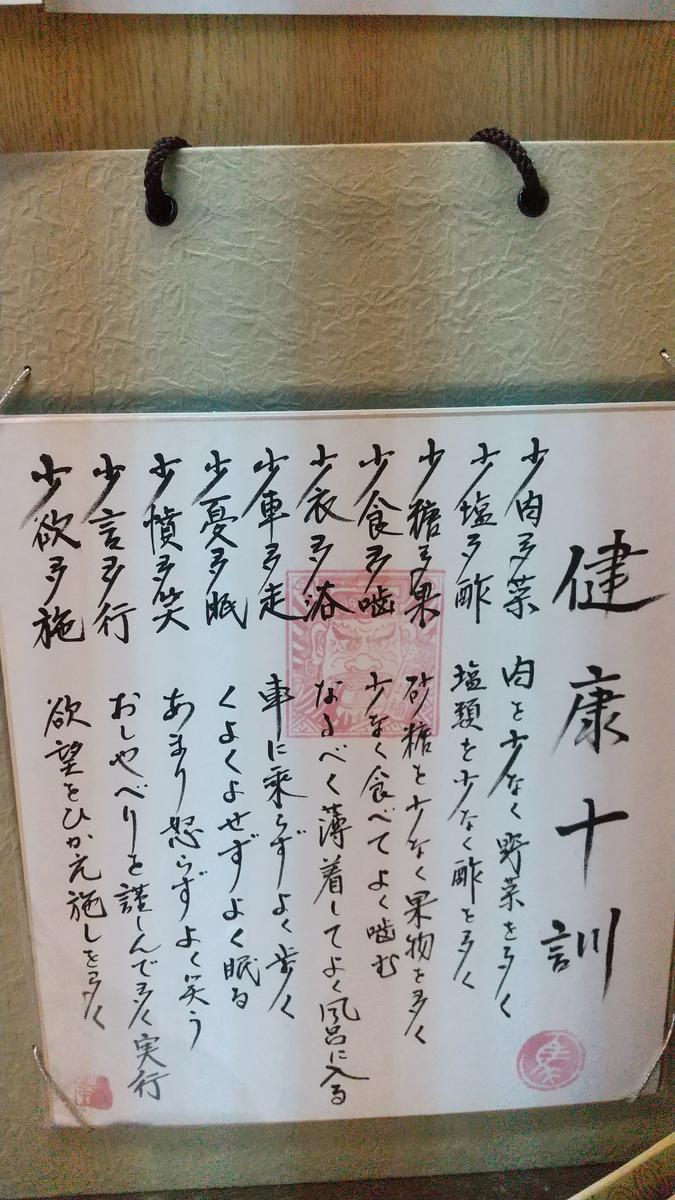 健康十訓
少肉多菜 肉を少なく野菜を多く
少塩多酢 塩類を少なく酢を多く
少糖多果 砂糖を少なく果物を多く
少食多噛 少なく食べてよく噛む
少衣多浴 なるべく薄着してよく風呂に入る
少車多走 車に乗らずよく歩く
少憂多眠 くよくよせずよく眠る
少憤多笑 あまり怒らずよく笑う
少言多行 おしゃべりを謹しんで多く実行
少欲多施 欲望をひかえ施しを多く